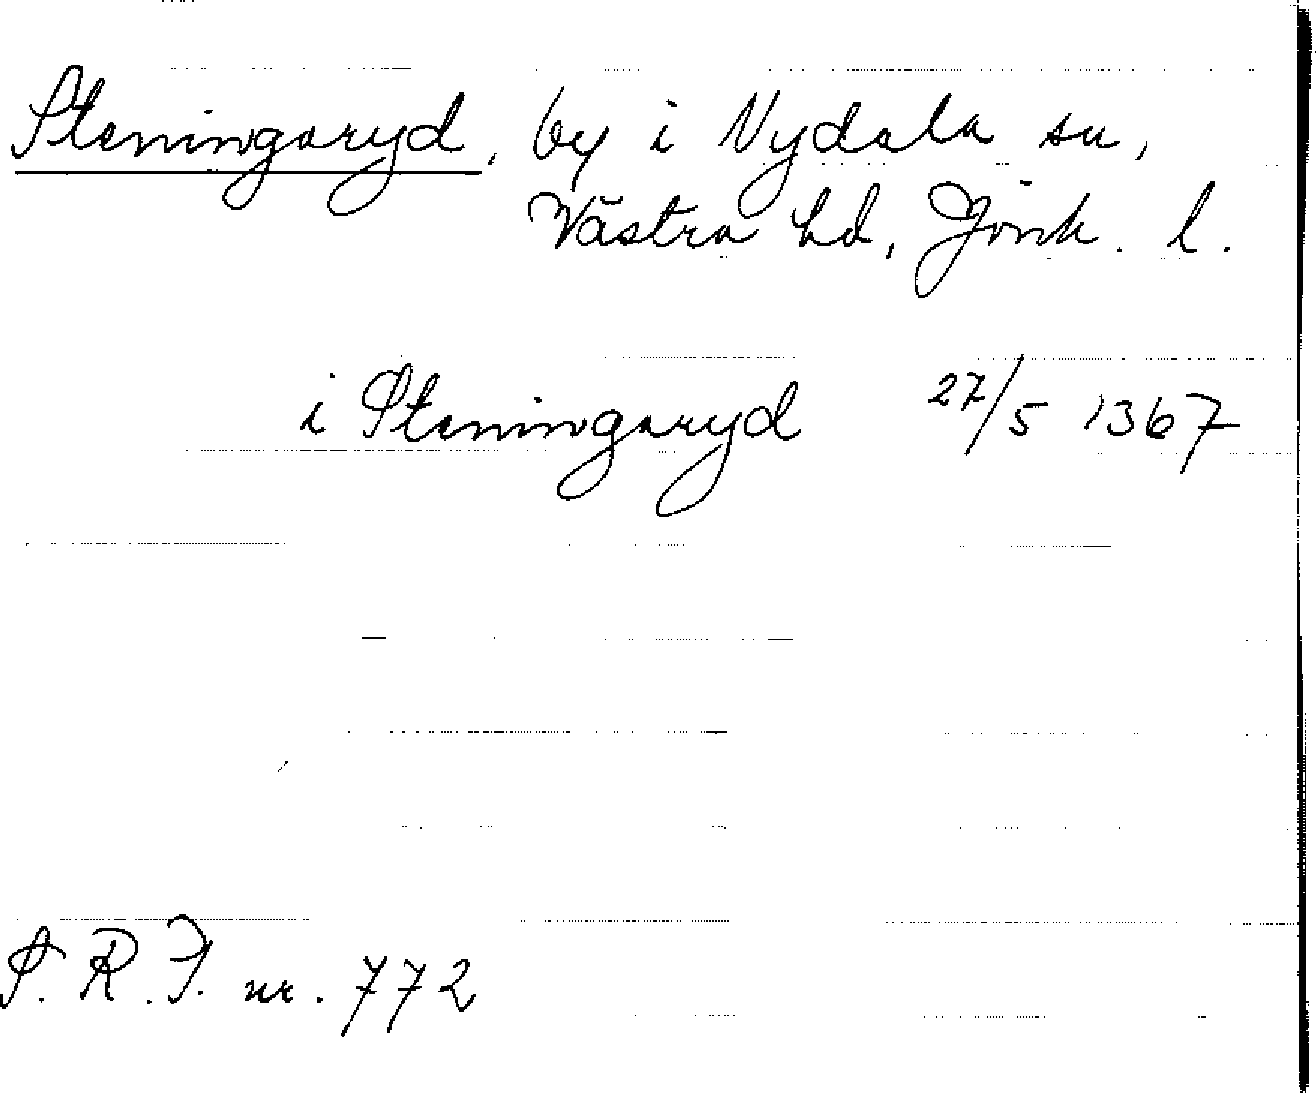 Steningaryd, by i Nydala sn,
Västra hd, Jönk. l.
i Steningaryd 27/5 1367
S. R. P. nr. 772